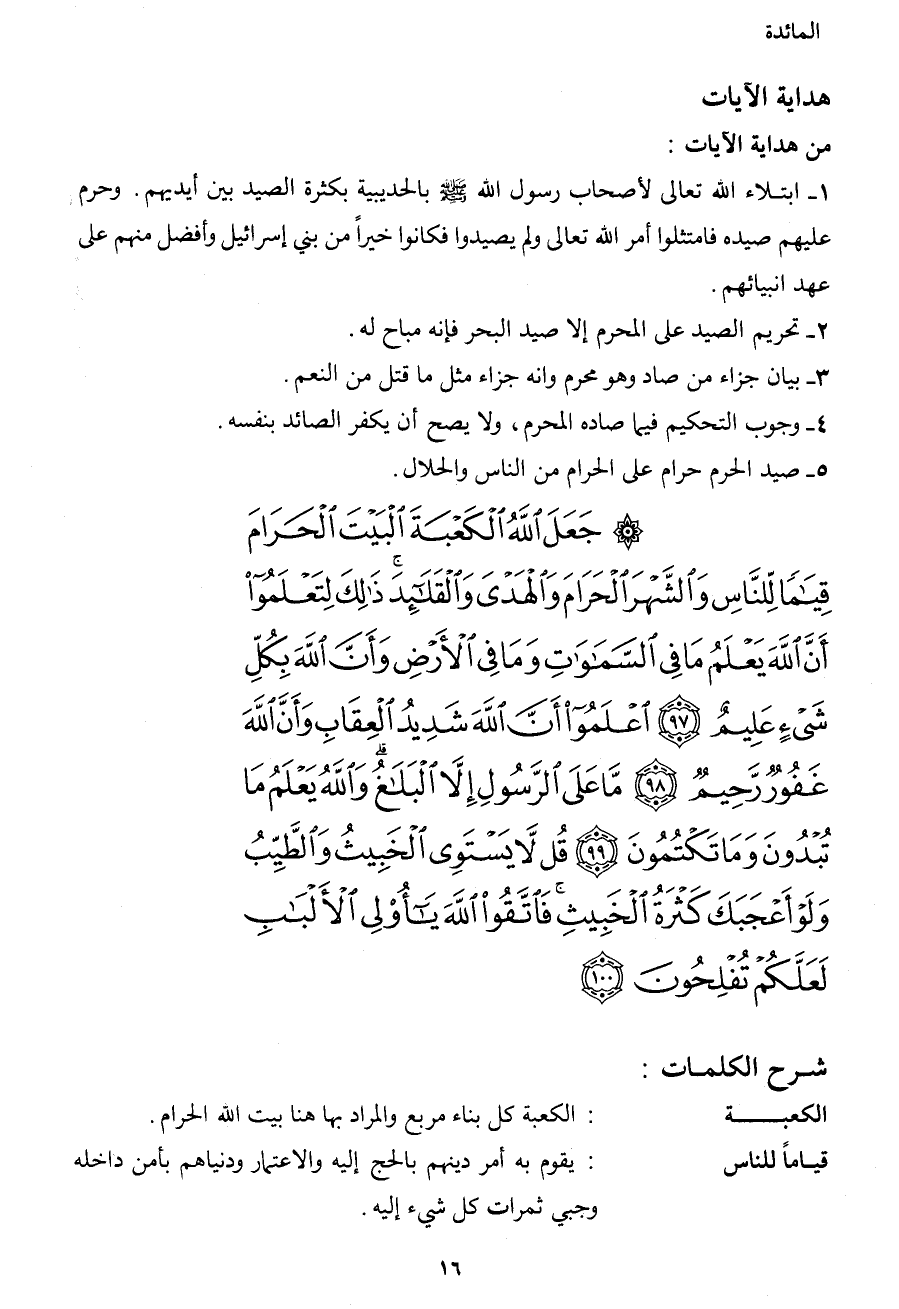 المائدة
هداية الآيات
من هداية الآيات :
١ـ ابتـلاء الله تعالى لأصحاب رسول الله ﷺ بالحديبية بكثرة الصيد بين أيديهم . وحرم
عليهم صيده فامتثلوا أمر الله تعالى ولم يصيدوا فكانوا خيراً من بني إسرائيل وأفضل منهم على
عهد انبيائهم .
٢ـ تحريم الصيد على المحرم إلا صيد البحر فإنه مباح له .
٣ـ بيان جزاء من صاد وهو محرم وانه جزاء مثل ما قتل من النعم .
٤ـ وجوب التحكيم فيما صاده المحرم ، ولا يصح أن يكفر الصائد بنفسه .
٥ـ صيد الحرم حرام على الحرام من الناس والحلال .
۞ جَعَلَ ٱللَّهُ ٱلْكَعْبَةَ ٱلْبَيْتَ ٱلْحَرَامَ
قِيَٰمًا لِّلنَّاسِ وَٱلشَّهْرَ ٱلْحَرَامَ وَٱلْهَدْىَ وَٱلْقَلَٰٓئِدَ ۚ ذَٰلِكَ لِتَعْلَمُوٓا۟
أَنَّ ٱللَّهَ يَعْلَمُ مَا فِى ٱلسَّمَٰوَٰتِ وَمَا فِى ٱلْأَرْضِ وَأَنَّ ٱللَّهَ بِكُلِّ
شَىْءٍ عَلِيمٌ ٩٧ ٱعْلَمُوٓا۟ أَنَّ ٱللَّهَ شَدِيدُ ٱلْعِقَابِ وَأَنَّ ٱللَّهَ
غَفُورٌ رَّحِيمٌ ٩٨ مَّا عَلَى ٱلرَّسُولِ إِلَّا ٱلْبَلَٰغُ ۗ وَٱللَّهُ يَعْلَمُ مَا
تُبْدُونَ وَمَا تَكْتُمُونَ ٩٩ قُل لَّا يَسْتَوِى ٱلْخَبِيثُ وَٱلطَّيِّبُ
وَلَوْ أَعْجَبَكَ كَثْرَةُ ٱلْخَبِيثِ ۚ فَٱتَّقُوا۟ ٱللَّهَ يَٰٓأُو۟لِى ٱلْأَلْبَٰبِ
لَعَلَّكُمْ تُفْلِحُونَ ١٠٠
شـرح الكلمـات :
الكعبـــــة : الكعبة كل بناء مربع والمراد بها هنا بيت الله الحرام .
قيـاماً للناس : يقوم به أمر دينهم بالحج إليه والاعتمار ودنياهم بأمن داخله
وجبي ثمرات كل شيء إليه .
١٦